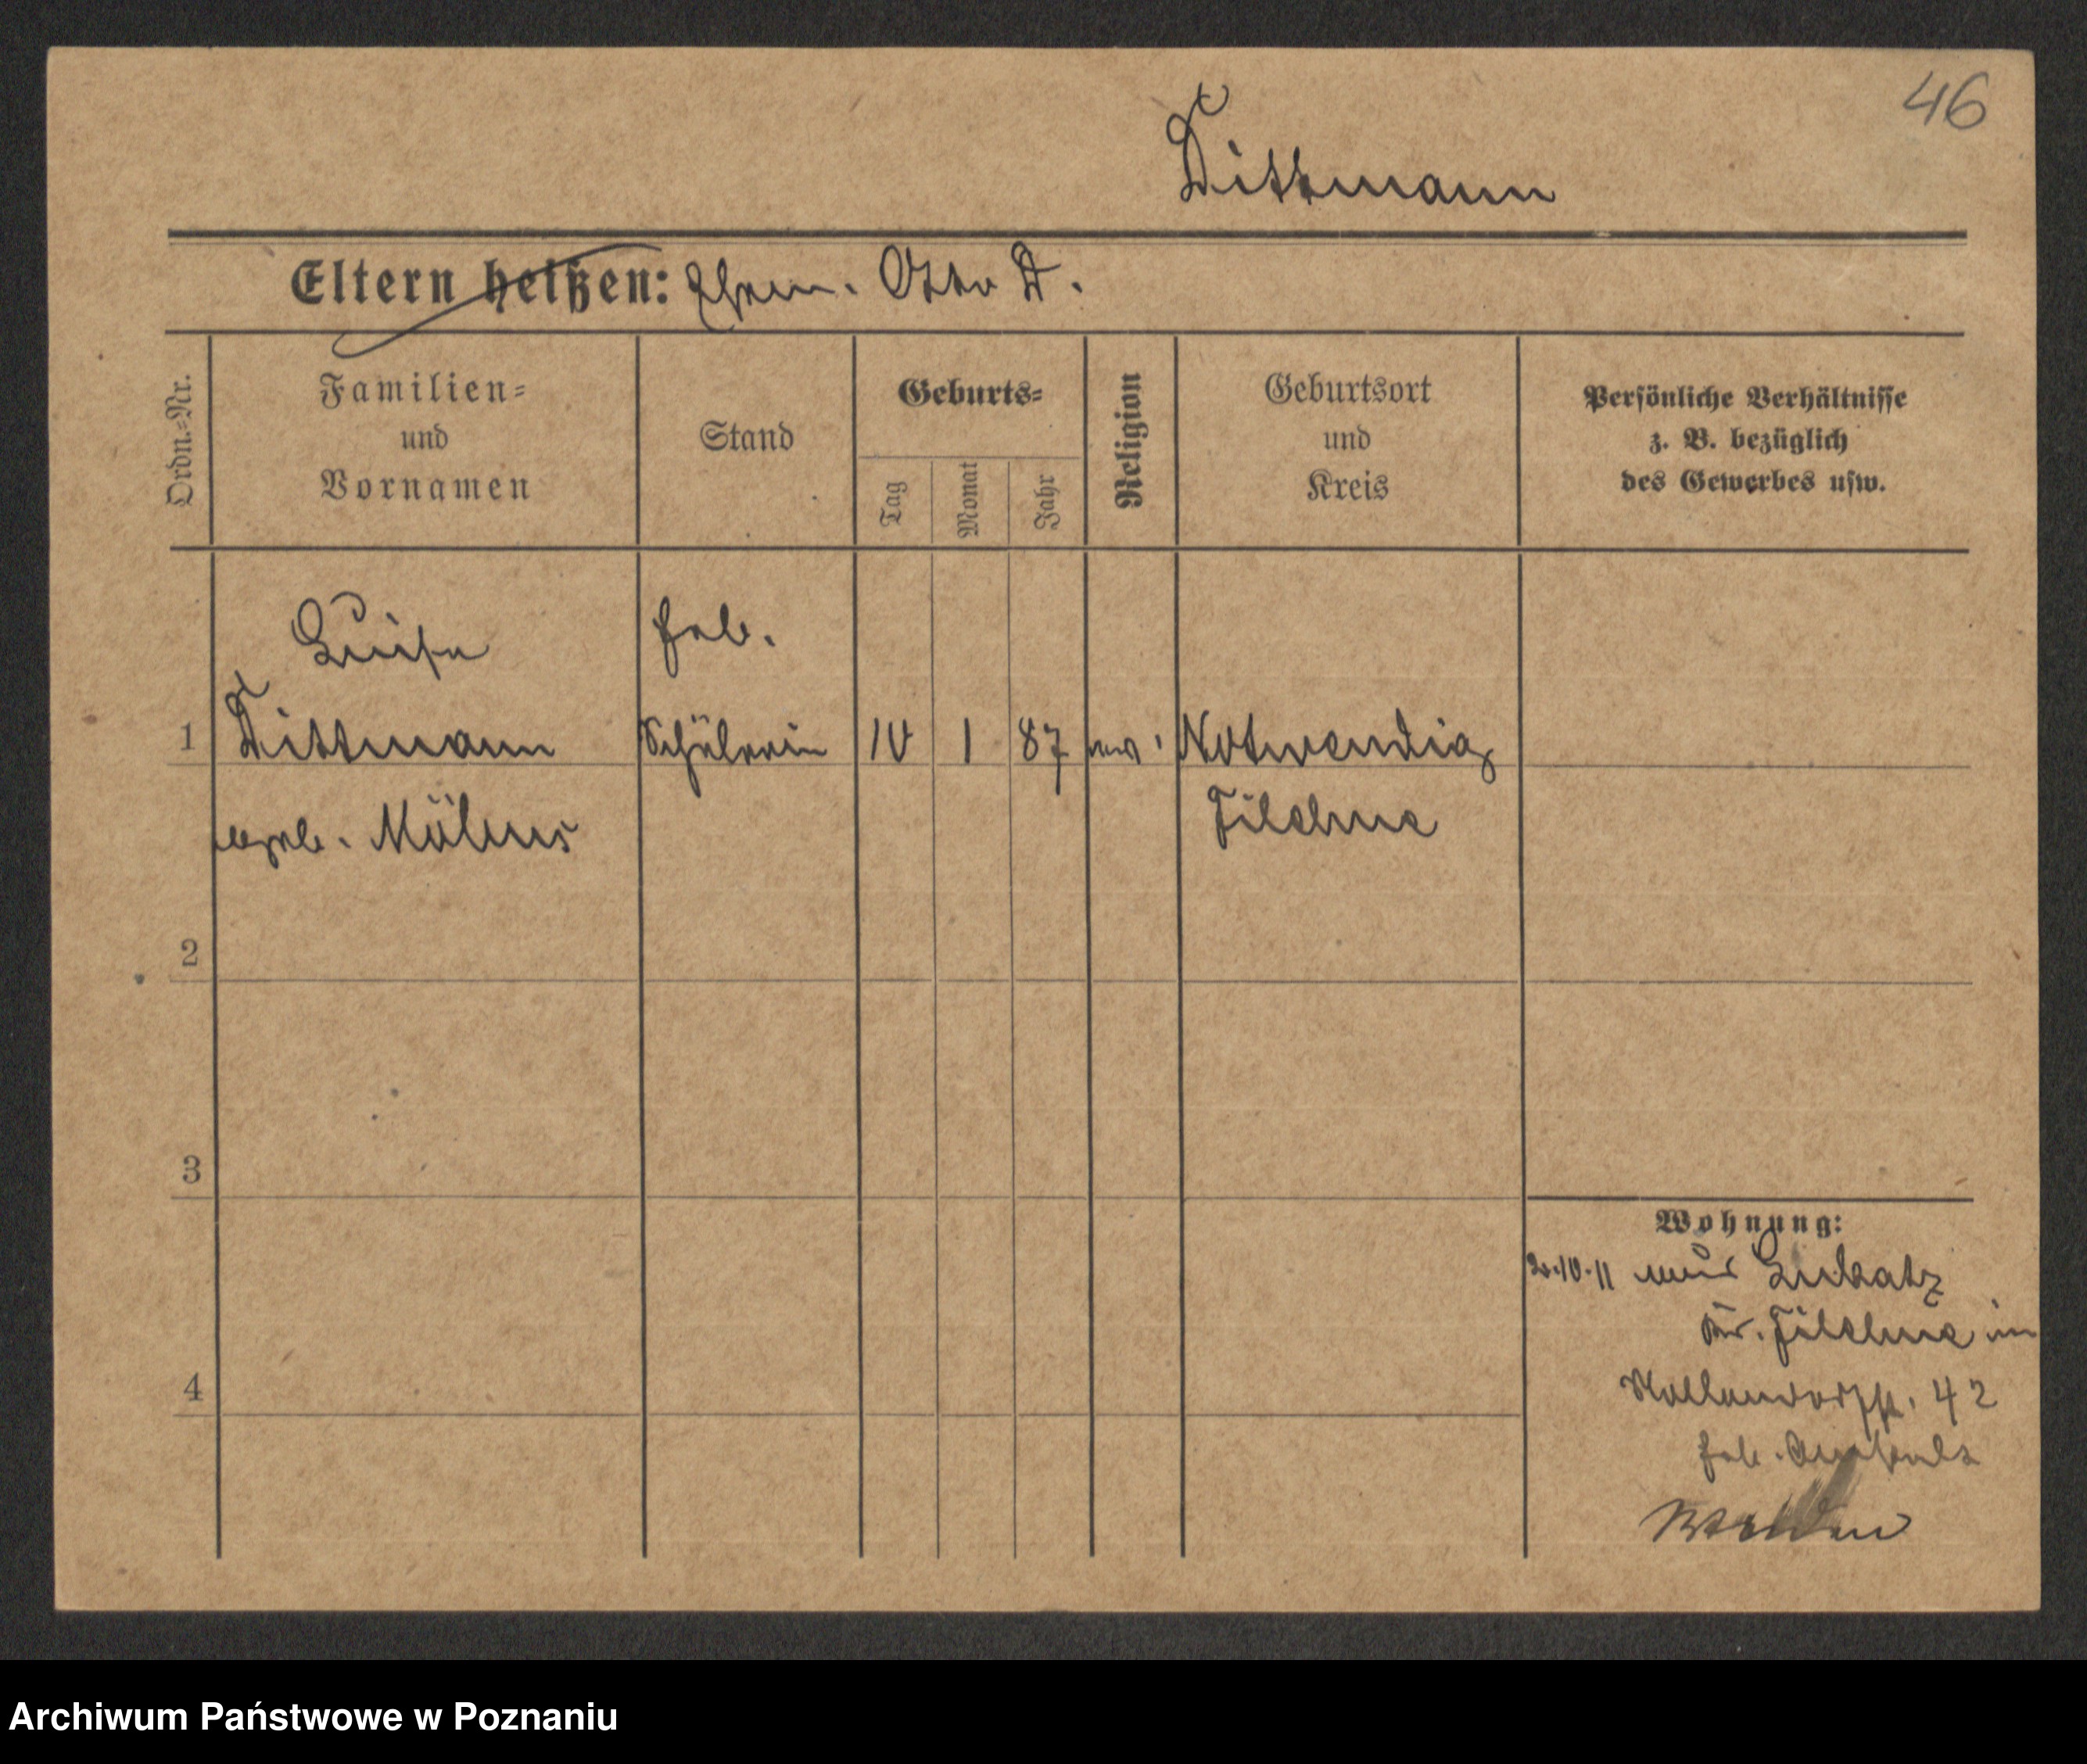 46
Dittmann
Eltern heißen: Ehem. Otto D.
Ordn.=Nr.
Familien=
und
Vornamen
Stand
Geburts=
Tag
Monat
Jahr
Religion
Geburtsort
und
Kreis
Persönliche Verhältnisse
z. B. bezüglich
des Gewerbes usw.
Luise
Heb.
1 Dittmann Schülerin 10 1 87 ev. Notwendig
geb. Möbus Filehne
2
3
Wohnung:
2.10.11 aus Lubatz
Kr. Filehne in
Nollendorfstr. 42
4
Heb.
Archiwum Państwowe w Poznaniu